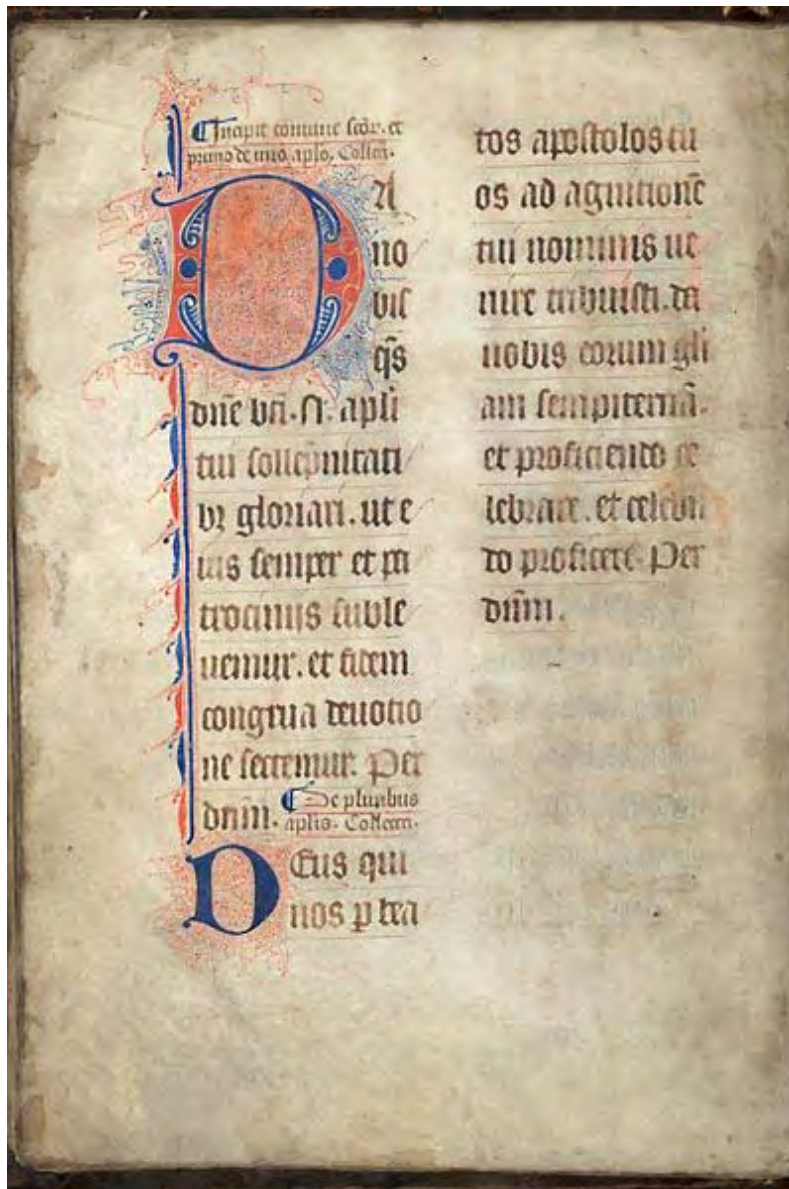 Incipit comune scōꝝ. et
primo de uno aplo. Collcā.
DA
no
bis
qs̄
dn̄e bti. N. apli
tui sollēpnitati
bꝫ gloriari. ut e
ius semper et pa
trociniis suble
uemur. et fidem
congrua deuotio
ne sectemur. Per
dn̄m. De pluribus
aplis. Collcā.
Deus qui
nos ꝑ bea
tos apostolos tu
os ad agnitionē
tui nominis ue
nire tribuisti. da
nobis eorum gli
am sempiternā.
et proficiendo ce
lebrare. et celebrā
do proficere. Per
dn̄m.